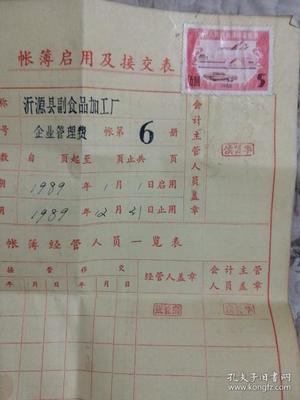 帐簿启用及接交表
称 沂源县副食品加工厂
号 企业管理费 帐第 6 册
数 自 页起至 页止共 页
期 1989 年 1 月 1 日启用
期 1989 年 12 月 31 日止用
会计主管人员盖章
5
帐簿经管人员一览表
接管 移交 经管人员盖章 会计主管人员盖章
年 月 日 年 月 日
孔夫子旧书网